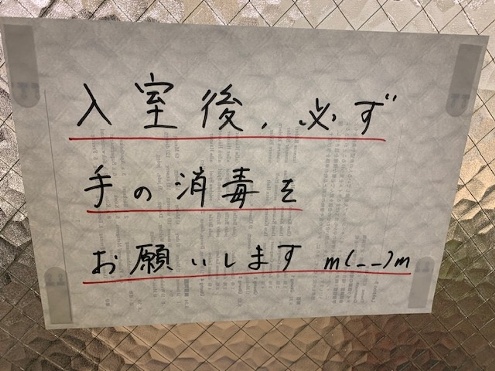 入室後、必ず
手の消毒を
お願いします m(__)m